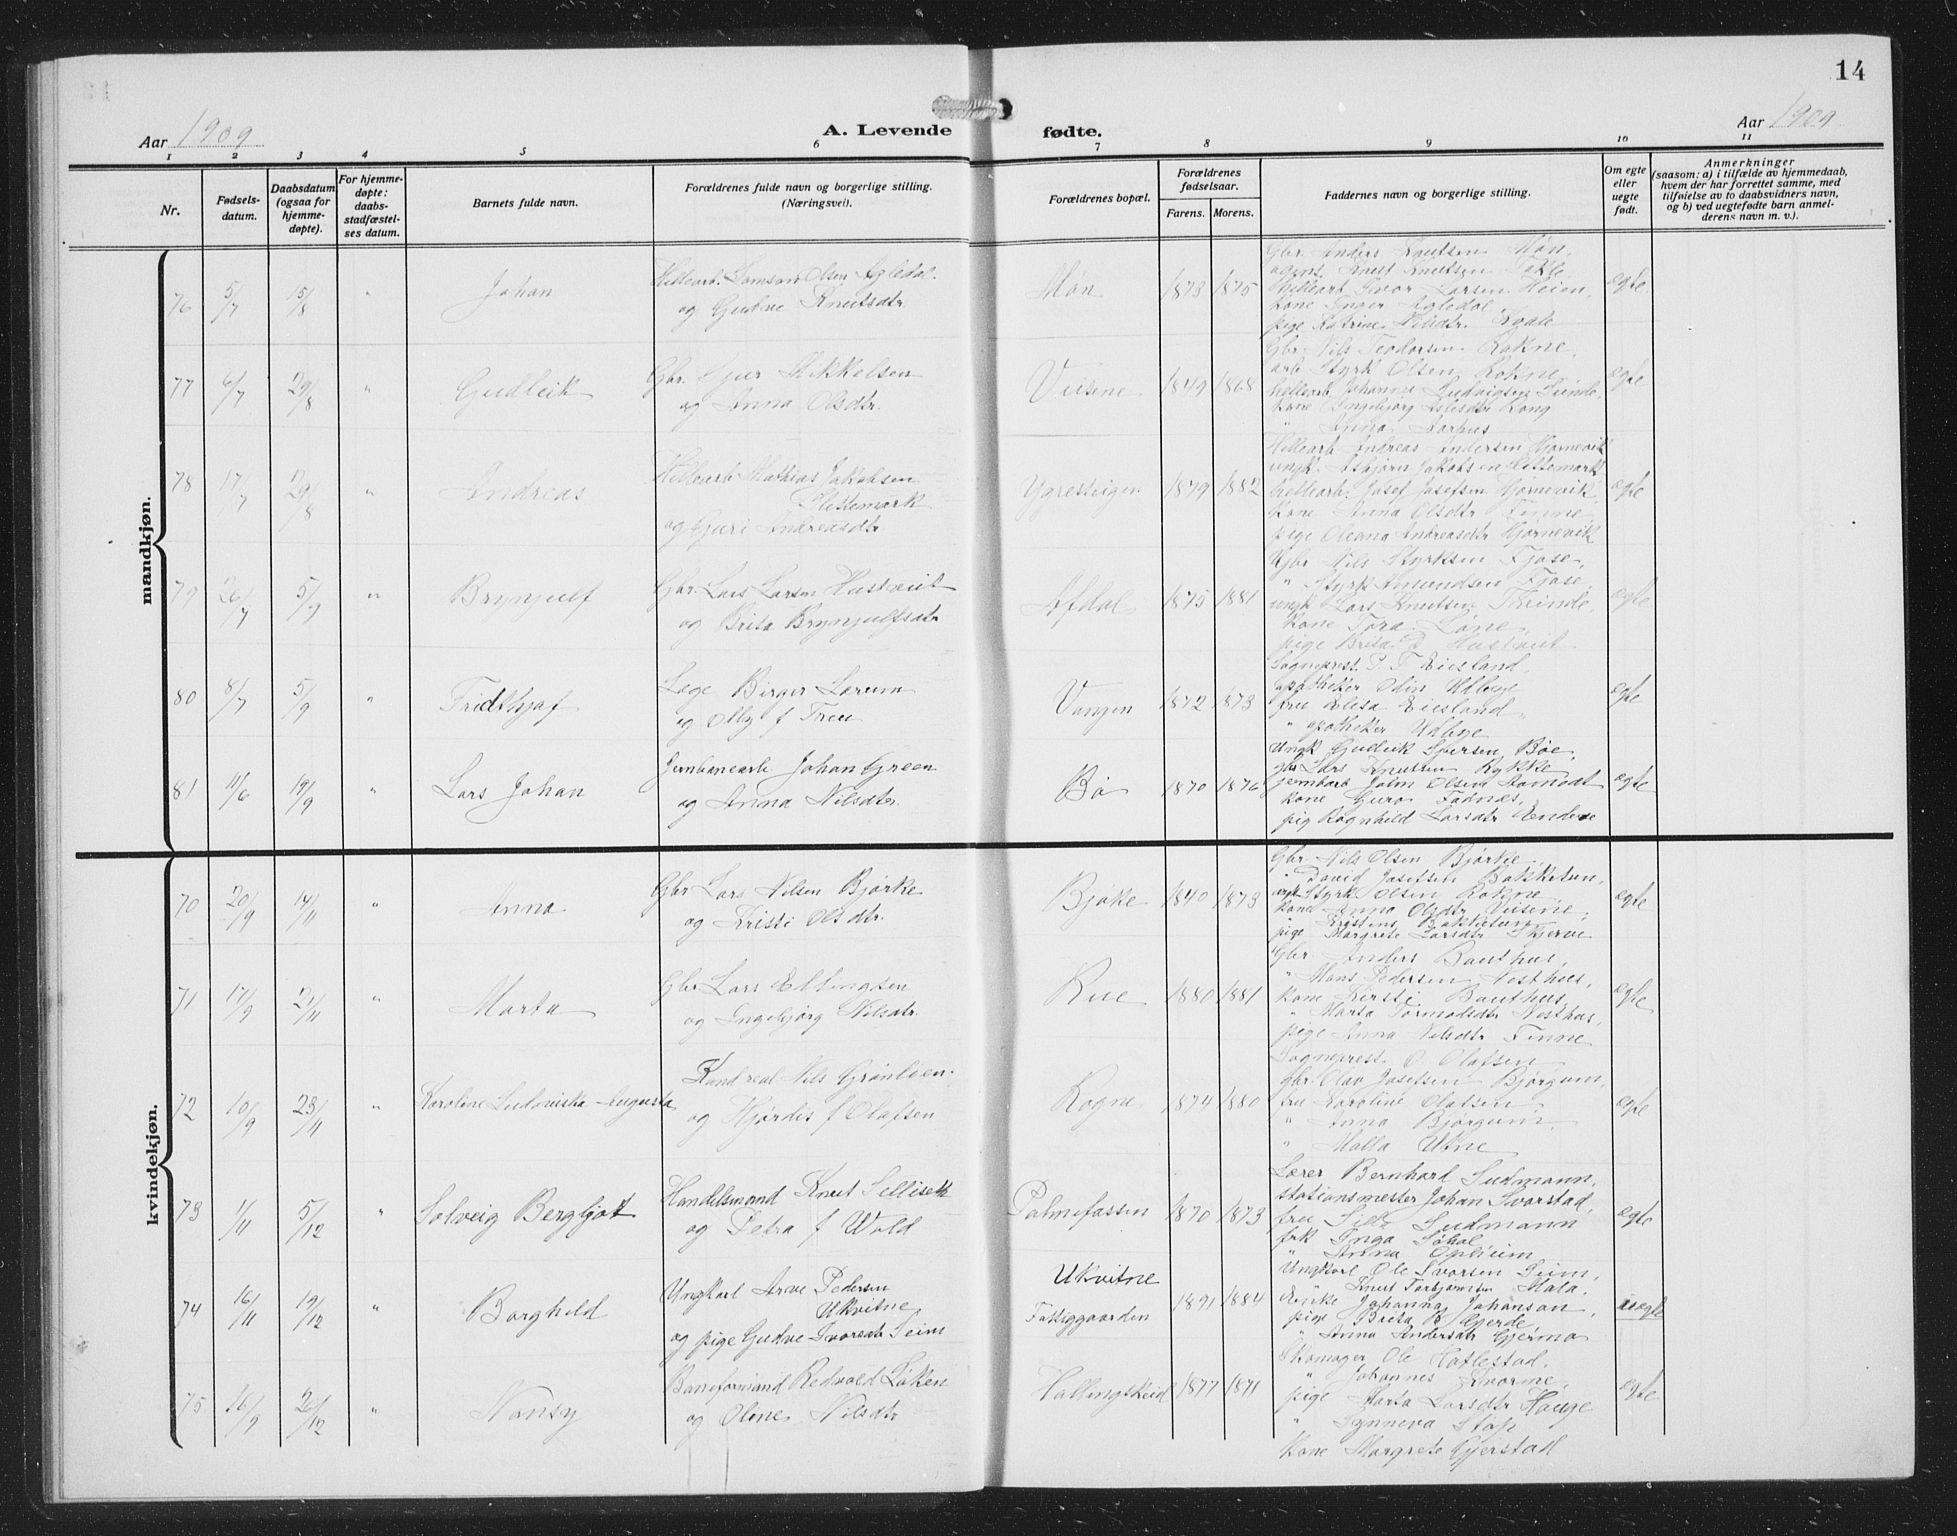 14
Aar 1909
A. Levende fødte.
Aar 1909
1 2 3 4 5 6 7 8 9 10 11
Nr.
Fødsels-
datum.
Daabsdatum
(ogsaa for
hjemme-
døpte).
For hjemme-
døpte:
daabs-
stadfæstel-
ses datum.
Barnets fulde navn.
Forældrenes fulde navn og borgerlige stilling.
(Næringsvei).
Forældrenes bopæl.
Forældrenes
fødselsaar.
Farens. Morens.
Faddernes navn og borgerlige stilling.
Om egte
eller
uegte
født.
Anmerkninger
(saasom: a) i tilfælde av hjemmedaab,
hvem der har forrettet samme, med
tilføielse av to daabsvidners navn,
og b) ved uegtefødte barn anmel-
derens navn m. v.).
mandkjøn.
76 5/7 15/8 " Johan
Hellearb. Lamson Olsen Agledal
og Gudve Knutsdtr
Møn 1873 1875
Gbr Anders Knutsen Møn,
Knut Knutsen Takle
Hellearb Ivor Larsen Heien,
kone Inger Agledal,
pige Katrine Nilsdtr. Kvale
egte
77 6/7 29/8 " Gudleik
Gbr. Sjur Mikkelsen
og Anna Olsdtr.
Vusene 1849 1868
Gbr Nils Teodorsen Rokne,
arb Styrk Olsen Rokne,
hellearb Johannes Ludvigsen Grinde,
kone Ingebjørg Kong
" Anna Aarhus
egte
78 17/7 29/8 " Andreas
Hellearb Mathias Jakobsen
Flettemark
og Guri Andreasdtr
Ygresteigen 1879 1882
Hellearb Andreas Andersen Hjørnevik
ungk. Asbjørn Jakobsen Flettemark
hellearb. Josef Josefsen Hjørnevik,
kone Anna Olsdtr Finne
pige Oleana Andreasdtr Hjørnevik
egte
79 26/7 5/9 " Brynjulf
Gbr. Lars Larsen Hustveit
og Brita Brynjulfsdtr
Afdal 1875 1881
Gbr Nils Styrksen Fjose,
" Styrk Amundsen Fjose
ungk Lars Knutsen Grinde,
kone Tora Løne,
pige Brita Hustveit
egte
80 8/7 5/9 " Fridthjof
Læge Birger Lærum
og Olly f Treu
Vangen 1872 1873
Sogneprest P. T Eiesland,
apotheker Odin Udbye
fru Elisa Eiesland,
" apotheker Udbye
egte
81 11/6 19/9 " Lars Johan
Jernbanearb Johan Green
og Anna Nilsdtr.
Bø 1870 1876
Ungk Gudleik Sjursen Bøe,
gbr Lars Knutsen Rykke
jernbarb John Olsen Aamodt
kone Guro Fadnæs,
pig Ragnhild Larsdtr Endeve
egte
kvindekjøn.
70 20/9 14/11 " Anna
Gbr Lars Nilsen Bjørke
og Kristi Olsdtr.
Bjøke 1840 1873
Gbr. Nils Olsen Bjørke,
" David Josefsen Bakketun,
ungk Styrk Olsen Rokne,
kone Anna Olsdtr Vusene,
" Kristine Bakketun
pige Margrete Larsdtr Skjerve
egte
71 17/9 21/11 " Marta
Gbr Lars Ellingsen
og Ingebjørg Nilsdtr.
Rue 1880 1881
Gbr Anders Bauthus,
" Mons Pedersen Nesthus,
kone Kirsti Bauthus,
" Marta Tormodsdtr Nesthus,
pige Anna Nilsdtr Finne
egte
72 10/9 23/11 " Karoline Ludoviska Augusta
Kand real Nils Grønlien
og Hjørdis f Olafsen
Rogne 1874 1880
Sogneprest O. Olafsen
Gbr. Olav Josefsen Bjørgum,
fru Karoline Olafsen,
" Anna Bjørgum,
" Malla Utne
egte
73 1/11 5/12 " Solveig Bergljot
Handelsmand Knut Selliseth
og Petra f Wold
Palmefossen 1870 1873
Lærer Bernhard Sudmann,
stationsmester Johan Svarstad,
fru Sudmann
frk Inga Søhol
" Anna Opheim
egte
74 16/11 19/12 " Borghild
Ungkarl Arve Pedersen
Ukvitne
og pige Gudve Ivarsdtr Seim
Ukvitne
Fattiggaarden 1891 1884
Ungkarl Ole Ivarsen Seim,
" Knut Torbjørnsen Hala,
enke Johanna Johanson,
pige Brita B Gjerde,
" Anna Andersdtr Gjerme
uegte
75 16/9 26/12 " Nansy
Baneformand Redvald Løken
og Oline Nilsdtr
Hallingskeid 1877 1871
Skomager Ole Hatlestad,
" Johannes Kvarme,
pige Marta Larsdtr Hauge
" Synneva Støp
kone Margrete Gjerstad
egte